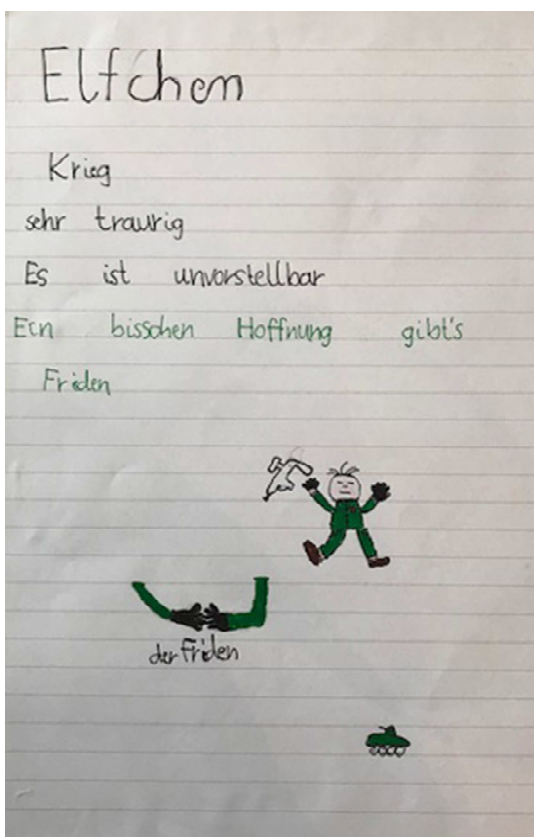 Elfchen
Krieg
sehr traurig
Es ist unvorstellbar
Ein bisschen Hoffnung gibt's
Friden
der Friden